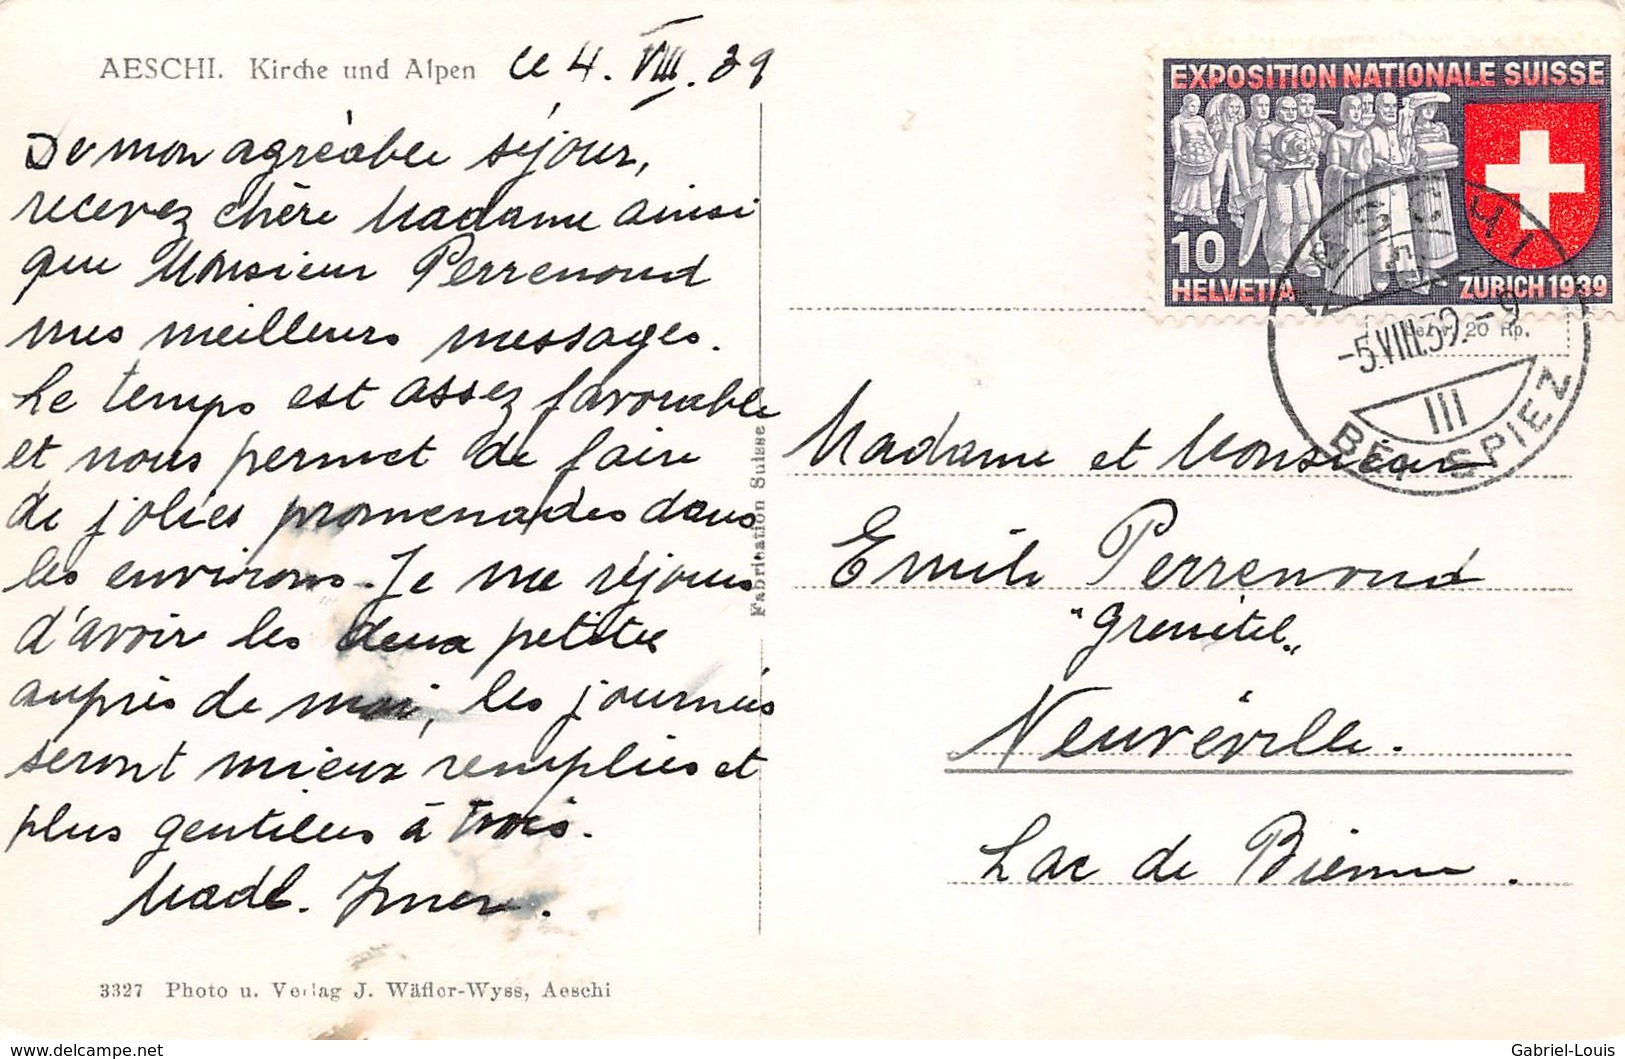 AESCHI. Kirche und Alpen
le 4. VIII. 39
De mon agréable séjour,
recevez chère Madame ainsi
que Monsieur Perrenoud
mes meilleurs messages.
Le temps est assez favorable
et nous permet de faire
de jolies promenades dans
les environs. Je me réjouis
d'avoir les deux petites
auprès de moi, les journées
seront mieux remplies et
plus gentilles à trois.
Madl. Imer.
3327 Photo u. Verlag J. Wäfler-Wyss, Aeschi
Fabrication Suisse
EXPOSITION NATIONALE SUISSE
10
HELVETIA
ZURICH 1939
AESCHI
-5.VIII.39.-9
III
BEI SPIEZ
20 Rp.
Madame et Monsieur
Emile Perrenoud
"Grenetel"
Neuveville.
Lac de Bienne.
www.delcampe.net
Gabriel-Louis